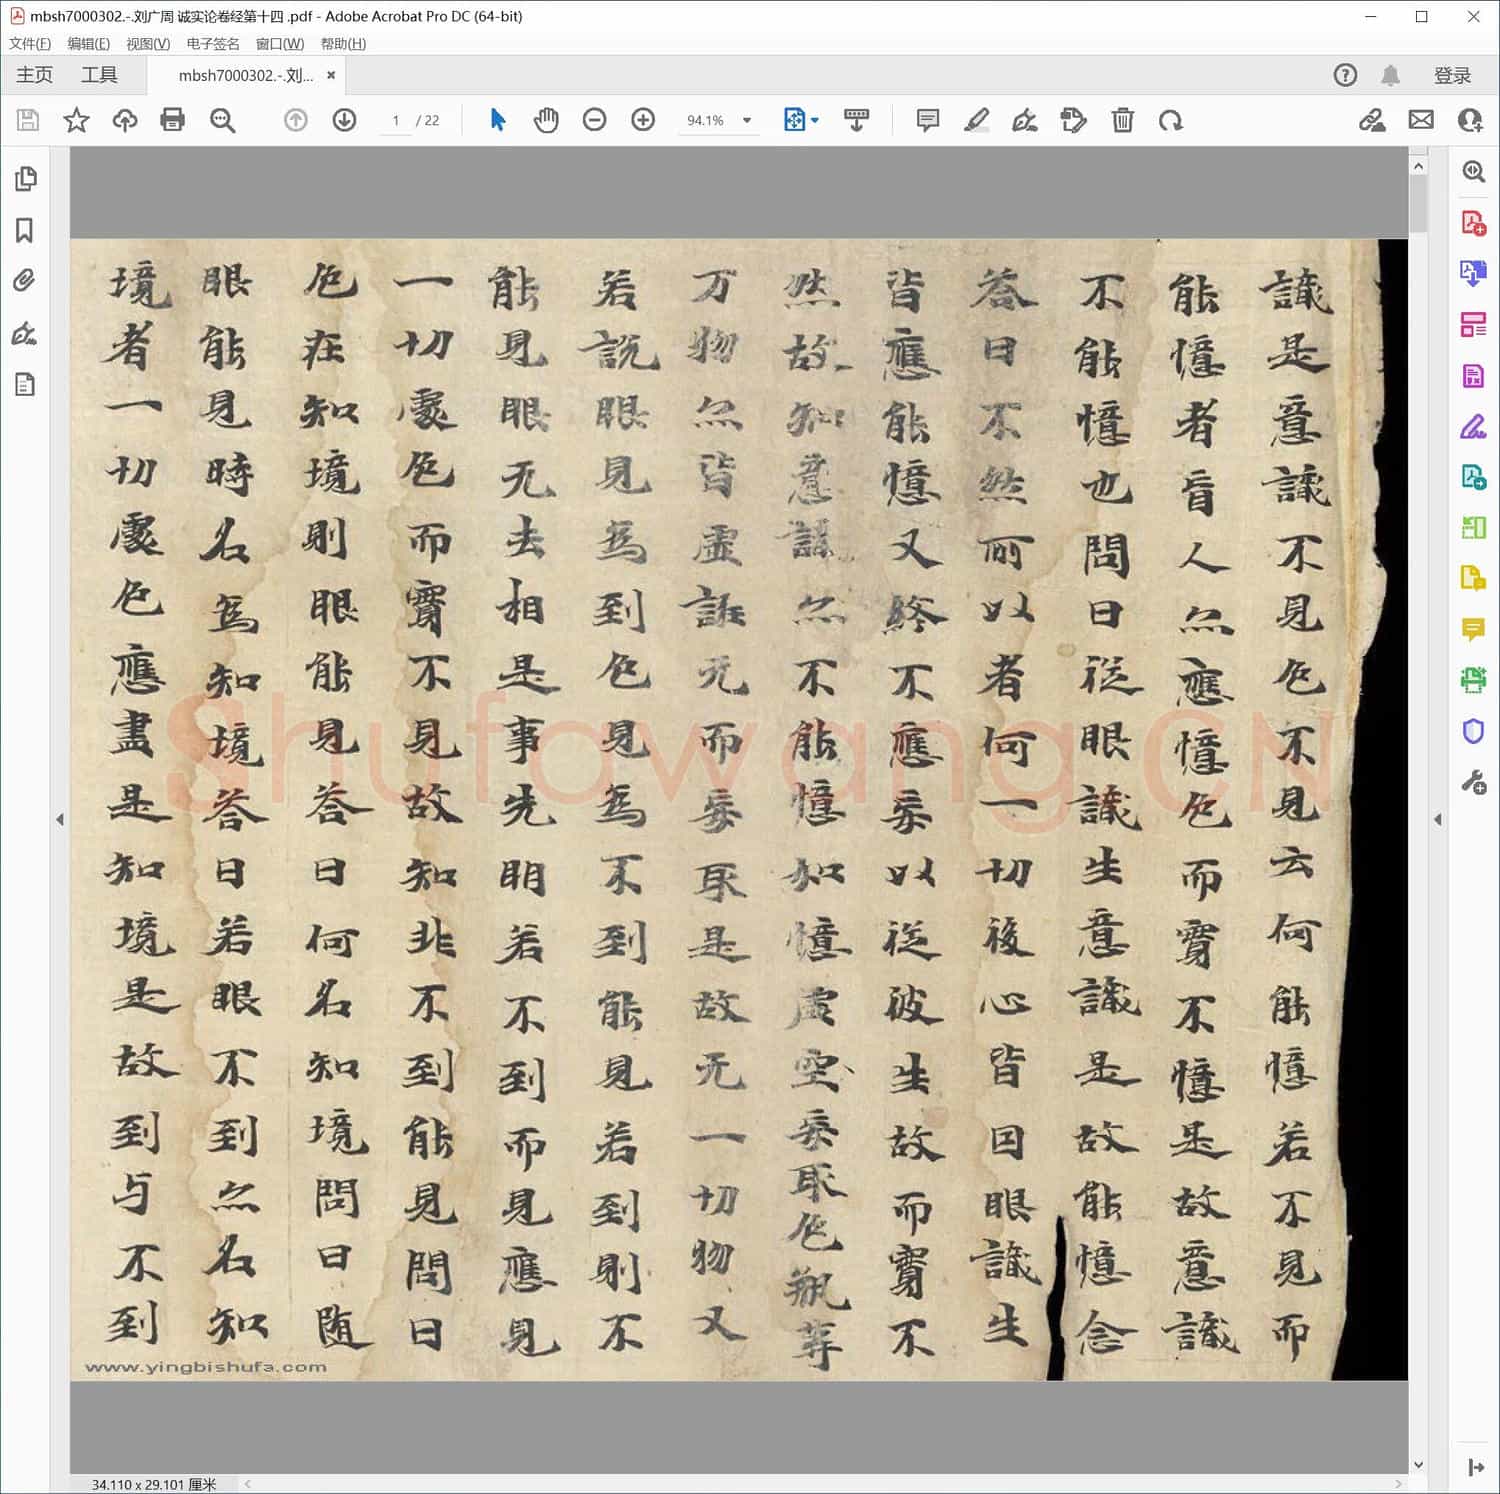 mbsh7000302.-.刘广周 诚实论卷经第十四 .pdf - Adobe Acrobat Pro DC (64-bit)
文件(F) 编辑(E) 视图(V) 电子签名 窗口(W) 帮助(H)
主页 工具 mbsh7000302.-.刘... 登录
1 / 22 94.1%
識是意識不見色不見云何能憶若不見而
能憶者盲人亦應憶色而實不憶是故意識
不能憶也問曰從眼識生意識是故能憶念
答曰不然所以者何一切後心皆因眼識生
皆應能憶又終不應妄以從彼生故而實不
然故知意識亦不能憶如憶虛空妄取色瓶等
万物亦皆虛誑无而妄取是故无一切物又
若說眼見為到色見為不到能見若到則不
能見眼无去相是事先明若不到而見應見
一切處色而實不見故知非不到能見問曰
色在知境則眼能見答曰何名知境問曰随
眼能見時名為知境答曰若眼不到亦名知
境者一切處色應盡是知境是故到与不到
Shufawang.CN
www.yingbishufa.com
34.110 x 29.101 厘米